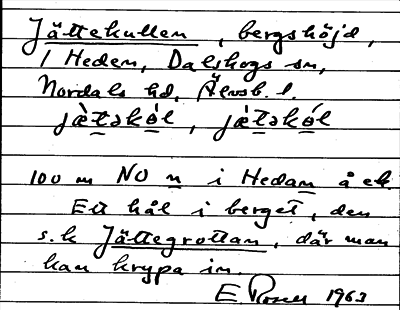 Jättekullen, bergshöjd,
1 Heden, Dalskogs sn,
Nordals hd, Älvsb. l.
jàtskól, jàtskól
100 m NO n i Hedan å ek.
Ett hål i berget, den
s.k Jättegrottan, där man
kan krypa in.
E. 1963